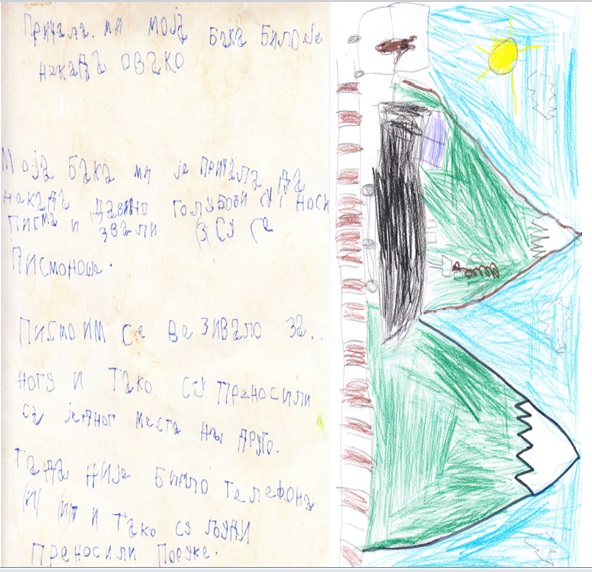 Причала ми моја бака било је
некада овако
Моја бака ми је причала да
некада давно голубови су носи
писма и звали су се
писмоноше.
Писмо им се везивало за..
ногу и тако су преносили
са једног места на друго.
Тада није било телефона
и тако су људи
преносили поруке.